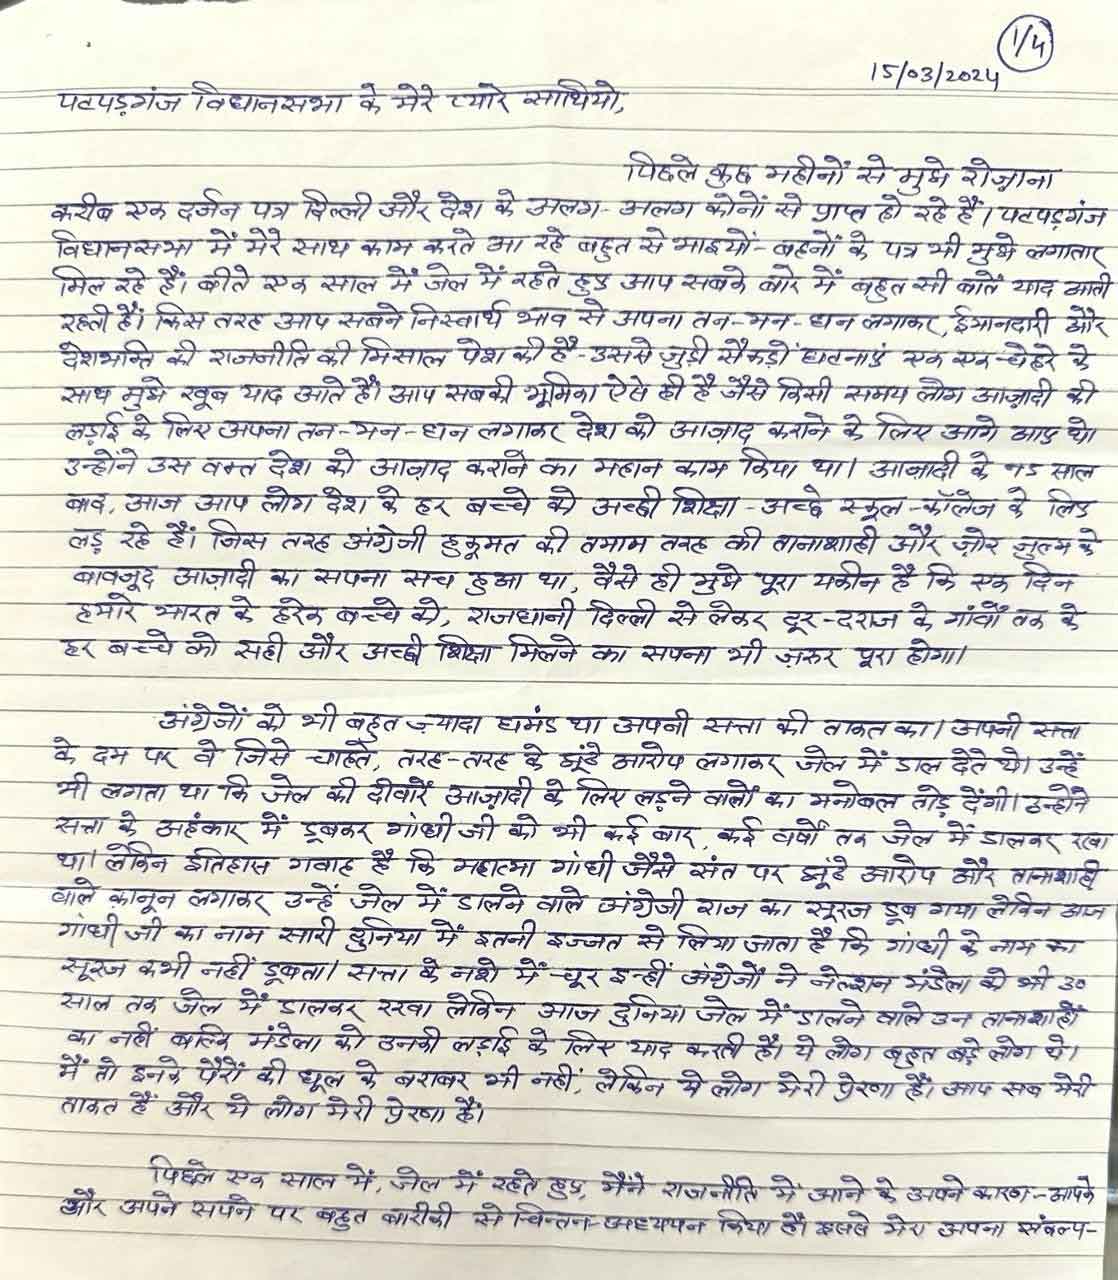 1/4
15/03/2024
पटपड़गंज विधानसभा के मेरे प्यारे साथियो,
पिछले कुछ महीनों से मुझे रोज़ाना
करीब एक दर्जन पत्र दिल्ली और देश के अलग-अलग कोनों से प्राप्त हो रहे हैं। पटपड़गंज
विधानसभा में मेरे साथ काम करते आ रहे बहुत से भाइयों-बहनों के पत्र भी मुझे लगातार
मिल रहे हैं। बीते एक साल में जेल में रहते हुए आप सबके बारे में बहुत सी बातें याद आती
रहती हैं। किस तरह आप सबने निस्वार्थ भाव से अपना तन-मन-धन लगाकर, ईमानदारी और
देशभक्ति की राजनीति की मिसाल पेश की है-उससे जुड़ी सैकड़ों घटनाएं एक एक चेहरे के
साथ मुझे खूब याद आते हैं। आप सबकी भूमिका ऐसे ही है जैसे किसी समय लोग आज़ादी की
लड़ाई के लिए अपना तन-मन-धन लगाकर देश को आज़ाद कराने के लिए आगे आए थे।
उन्होंने उस वक्त देश को आज़ाद कराने का महान काम किया था। आज़ादी के 75 साल
बाद, आज आप लोग देश के हर बच्चे को अच्छी शिक्षा-अच्छे स्कूल-कॉलेज के लिए
लड़ रहे हैं। जिस तरह अंग्रेजी हुकूमत की तमाम तरह की तानाशाही और ज़ोर जुल्म के
बावजूद आज़ादी का सपना सच हुआ था, वैसे ही मुझे पूरा यकीन है कि एक दिन
हमारे भारत के हरेक बच्चे को, राजधानी दिल्ली से लेकर दूर-दराज के गांवों तक के
हर बच्चे को सही और अच्छी शिक्षा मिलने का सपना भी ज़रूर पूरा होगा।
अंग्रेजों को भी बहुत ज़्यादा घमंड था अपनी सत्ता की ताकत का। अपनी सत्ता
के दम पर वे जिसे चाहते, तरह-तरह के झूंठे आरोप लगाकर जेल में डाल देते थे। उन्हें
भी लगता था कि जेल की दीवारें आज़ादी के लिए लड़ने वालों का मनोबल तोड़ देंगी। उन्होंने
सत्ता के अहंकार में डूबकर गांधी जी को भी कई बार, कई वर्षों तक जेल में डालकर रखा
था। लेकिन इतिहास गवाह है कि महात्मा गांधी जैसे संत पर झूंठे आरोप और तानाशाही
वाले क़ानून लगाकर उन्हें जेल में डालने वाले अंग्रेजी राज का सूरज डूब गया लेकिन आज
गांधी जी का नाम सारी दुनिया में इतनी इज्जत से लिया जाता है कि गांधी के नाम का
सूरज कभी नहीं डूबता। सत्ता के नशे में चूर इन्हीं अंग्रेजों ने नेल्शन मंडेला को भी 30
साल तक जेल में डालकर रखा लेकिन आज दुनिया जेल में डालने वाले उन तानाशाहों
का नहीं बल्कि मंडेला को उनकी लड़ाई के लिए याद करती है। ये लोग बहुत बड़े लोग थे।
मैं तो इनके पैरों की धूल के बराबर भी नहीं, लेकिन ये लोग मेरी प्रेरणा हैं। आप सब मेरी
ताकत हैं और ये लोग मेरी प्रेरणा हैं।
पिछले एक साल में, जेल में रहते हुए, मैंने राजनीति में आने के अपने कारण-आपके
और अपने सपने पर बहुत बारीकी से चिन्तन-अध्ययन किया है। इससे मेरा अपना संकल्प-